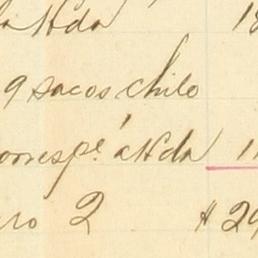 a Hda 18
9 sacos chile
orresp.e á Hda 1
ro 2 # 29